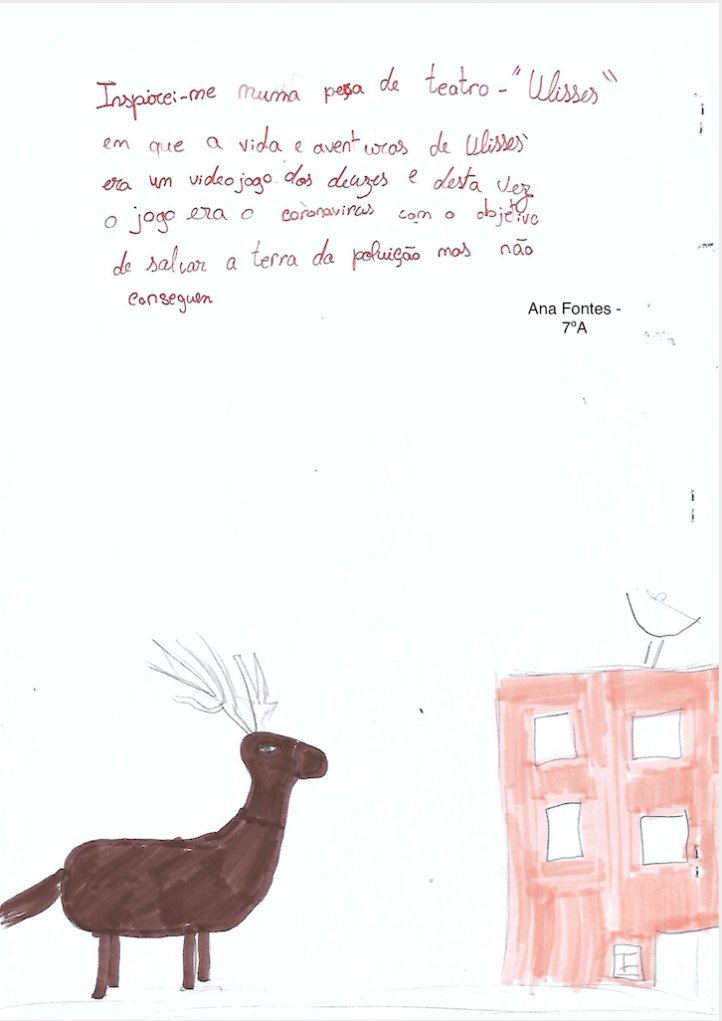 Inspirei-me numa peça de teatro - "Ulisses"
em que a vida e aventuras de Ulisses
era um videojogo dos deuzes e desta vez
o jogo era o coronavirus com o objetivo
de salvar a terra da poluição mas não
conseguem
Ana Fontes -
7ºA